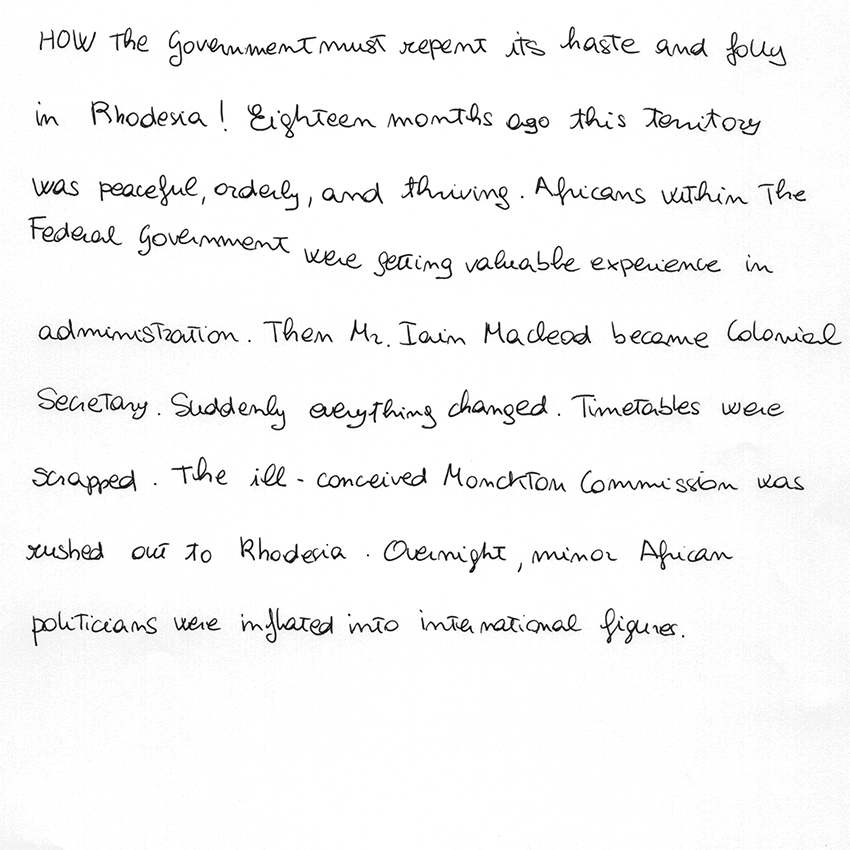 HOW the Government must repent its haste and folly
in Rhodesia! Eighteen months ago this territory
was peaceful, orderly, and thriving. Africans within the
Federal Government were getting valuable experience in
administration. Then Mr. Iain Macleod became Colonial
Secretary. Suddenly everything changed. Timetables were
scrapped. The ill-conceived Monckton Commission was
rushed out to Rhodesia. Overnight, minor African
politicians were inflated into international figures.